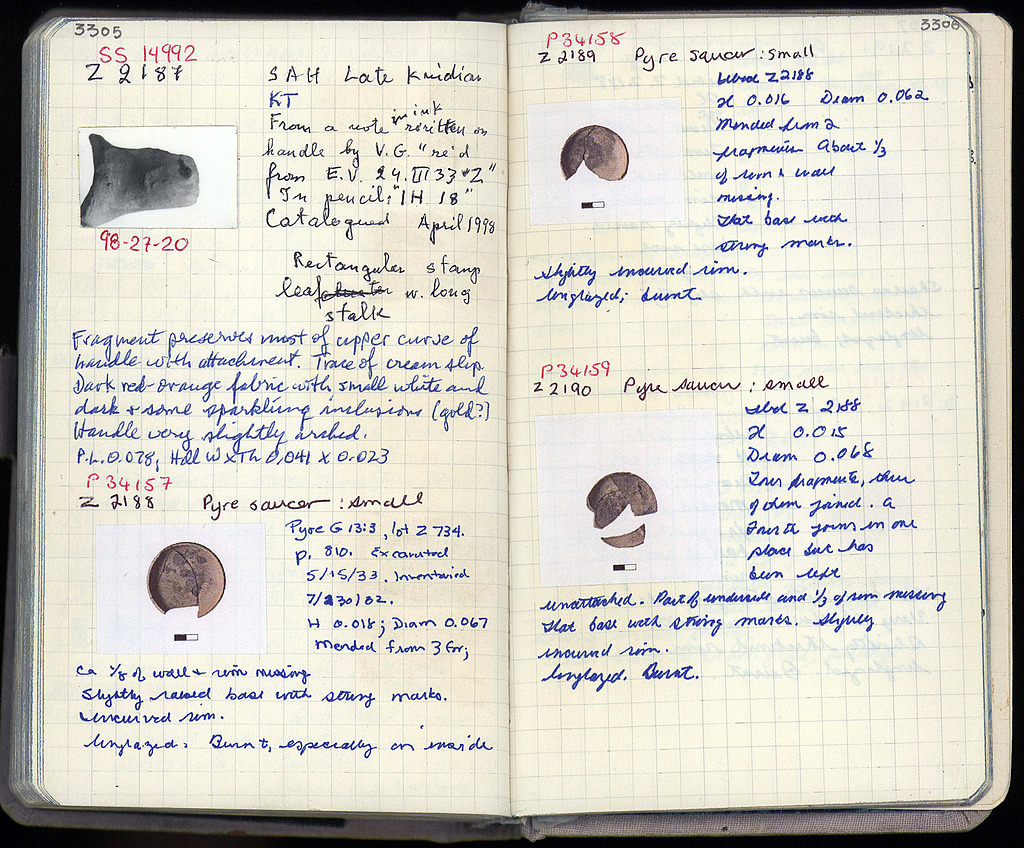 3305
SS 14992
Z 2187
SAH Late Knidian
KT
in ink
From a note written on
handle by V.G. "re'd
from E.V. 24.III 33 "Z"
In pencil: "IH 18"
Catalogued April 1998
98-27-20
Rectangular stamp
leaf w. long
stalk
Fragment preserves most of upper curve of
handle with attachment. Trace of cream slip.
Dark red-orange fabric with small white and
dark & some sparkling inclusions (gold?)
Handle very slightly arched.
P.L. 0.078, Hdl W x Th 0.041 x 0.023
P 34157
Z 2188 Pyre saucer : small
Pyre G 13:3, lot Z 734.
p. 810. Excavated
5/15/33. Inventoried
H 0.018; Diam 0.067
Mended from 3 fr;
ca 1/8 of wall & rim missing
Slightly raised base with string marks.
Incurved rim.
Unglazed. Burnt, especially on inside
3306
P 34158
Z 2189 Pyre saucer : small
Z 2188
H 0.016 Diam 0.062
Mended from 2
fragments. About 1/3
of rim & wall
missing.
Flat base with
string marks.
Slightly incurved rim.
Unglazed; burnt.
P 34159
Z 2190 Pyre saucer : small
Z 2188
H 0.015
Diam 0.068
Four fragments, three
of them joined. A
Fourth joins in one
place but has
been left
unattached. Part of underside and 1/3 of rim missing
Flat base with string marks. Slightly
incurved rim.
Unglazed. Burnt.